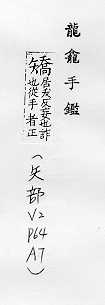 龍龕手鑑
矯居夭反妄也詐
也從手者正
(矢部
V2
P64
A7)